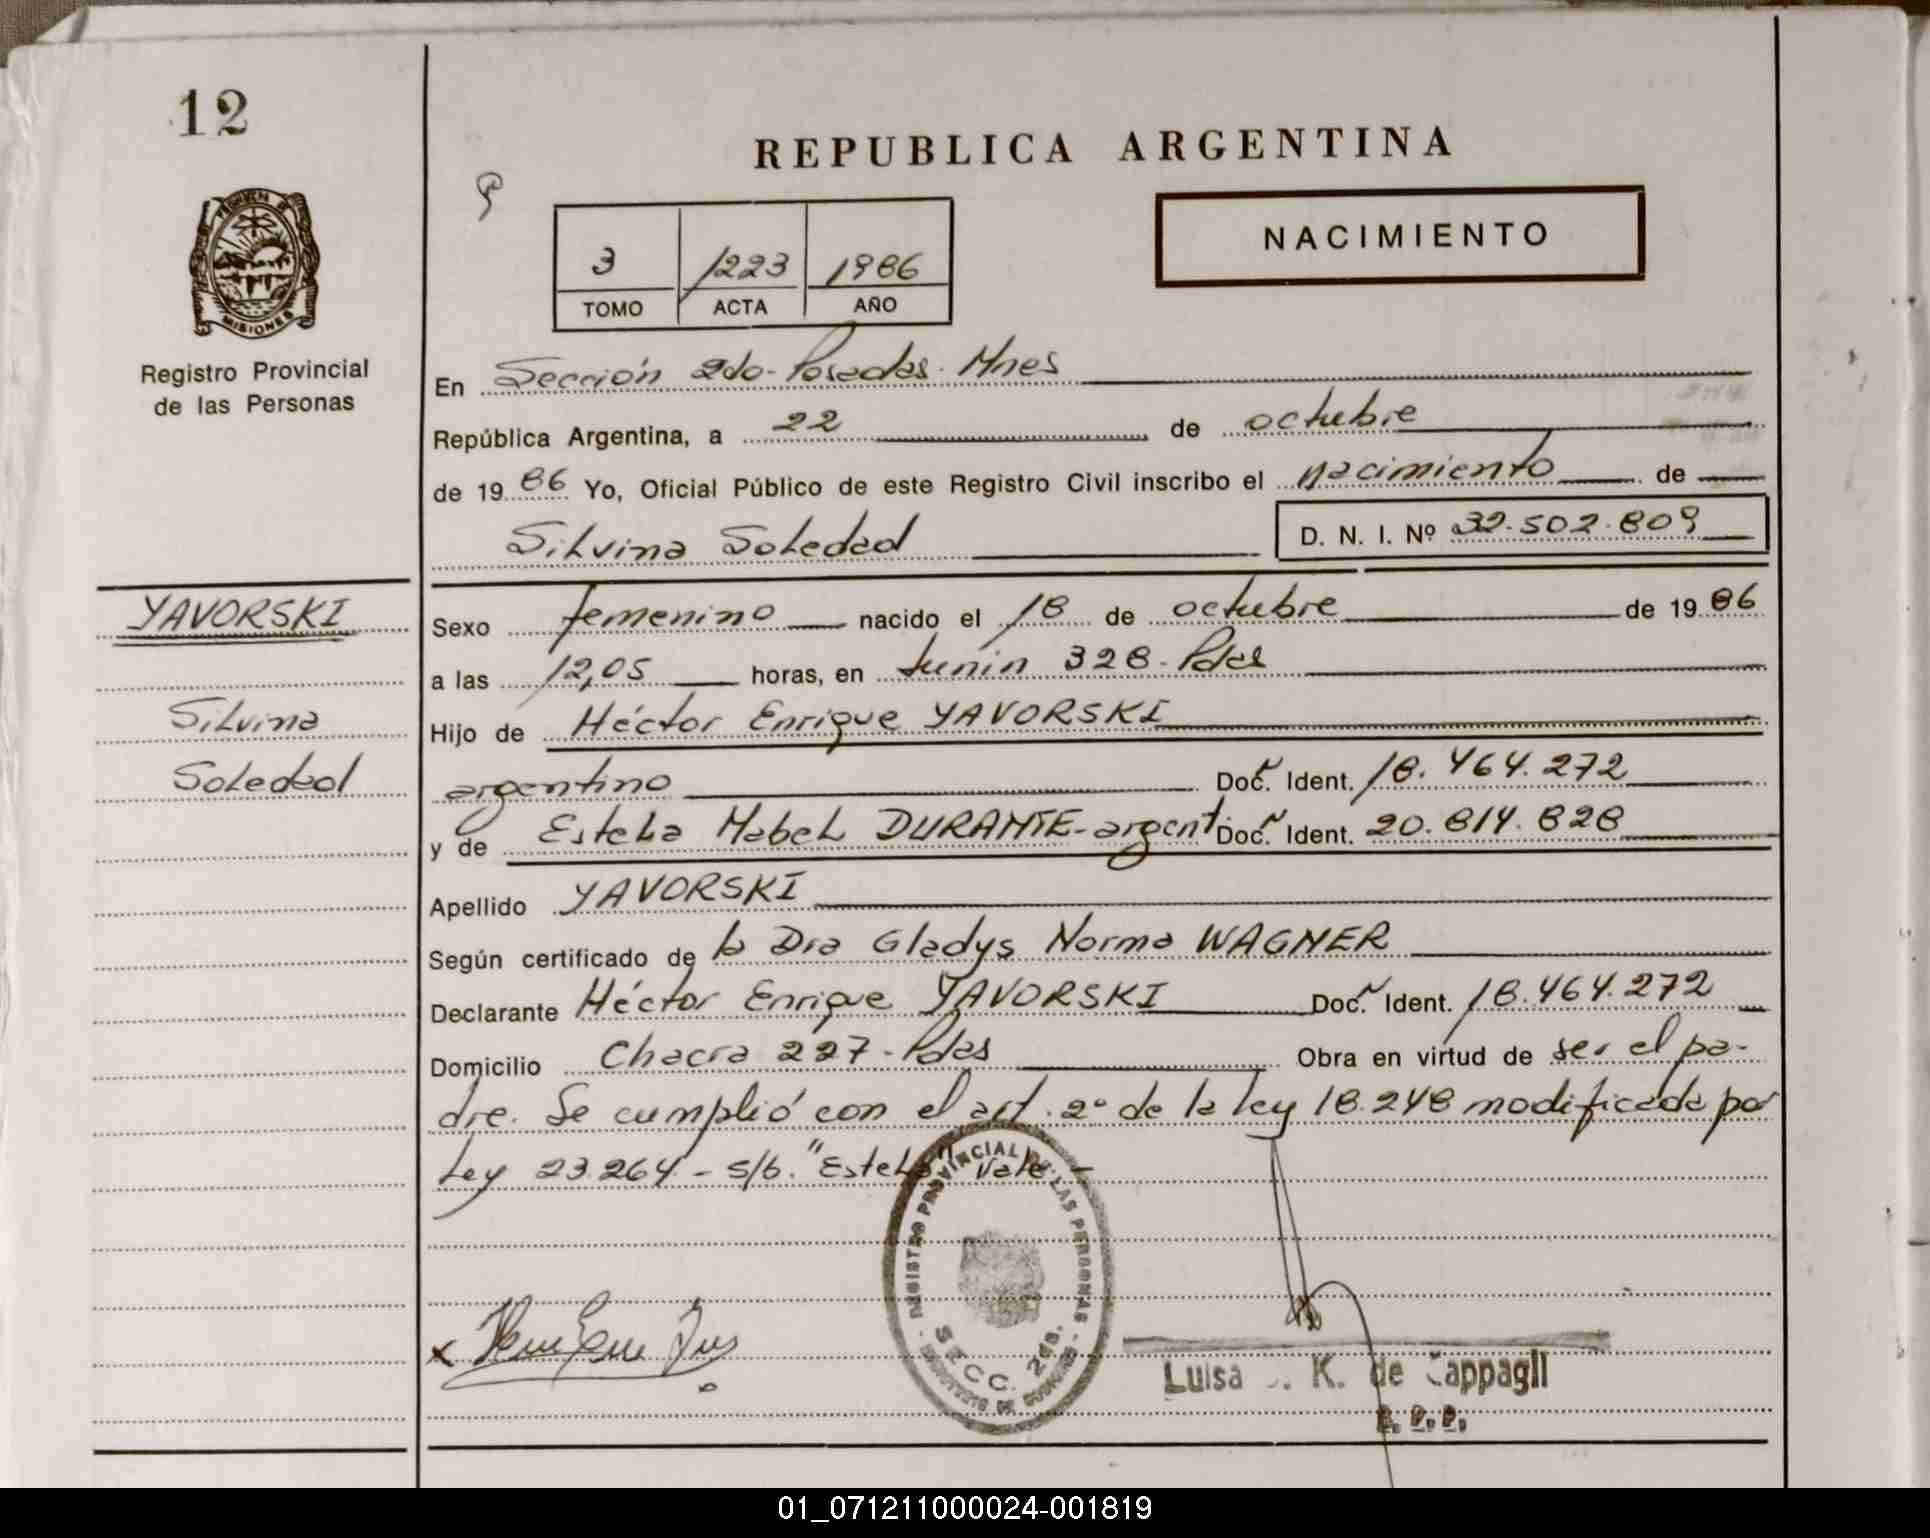 12
REPUBLICA ARGENTINA
NACIMIENTO
3 1223 1986
TOMO ACTA AÑO
PROVINCIA DE
MISIONES
Registro Provincial
de las Personas
En Sección 2do- Posadas. Mnes
República Argentina, a 22 de octubre
de 1986 Yo, Oficial Público de este Registro Civil inscribo el nacimiento de
Silvina Soledad D. N. I. Nº 32.502.809
YAVORSKI
Silvina
Soledad
Sexo femenino nacido el 18 de octubre de 1986
a las 12,05 horas, en Junin 328- Pdas
Hijo de Héctor Enrique YAVORSKI
argentino Doc. Ident. 18.464.272
y de Estela Mabel DURANTE- argent Doc. Ident. 20.814.828
Apellido YAVORSKI
Según certificado de la Dra Gladys Norma WAGNER
Declarante Héctor Enrique YAVORSKI Doc. Ident. 18.464.272
Domicilio Chacra 227- Pdas Obra en virtud de ser el pa-
dre. Se cumplió con el art. 2º de la ley 18.248 modificada por
Ley 23.264- s/b. "Estela" Vale-
REGISTRO PROVINCIAL DE LAS PERSONAS
SECC. 2da.
Luisa K. de Cappagli
01_071211000024-001819